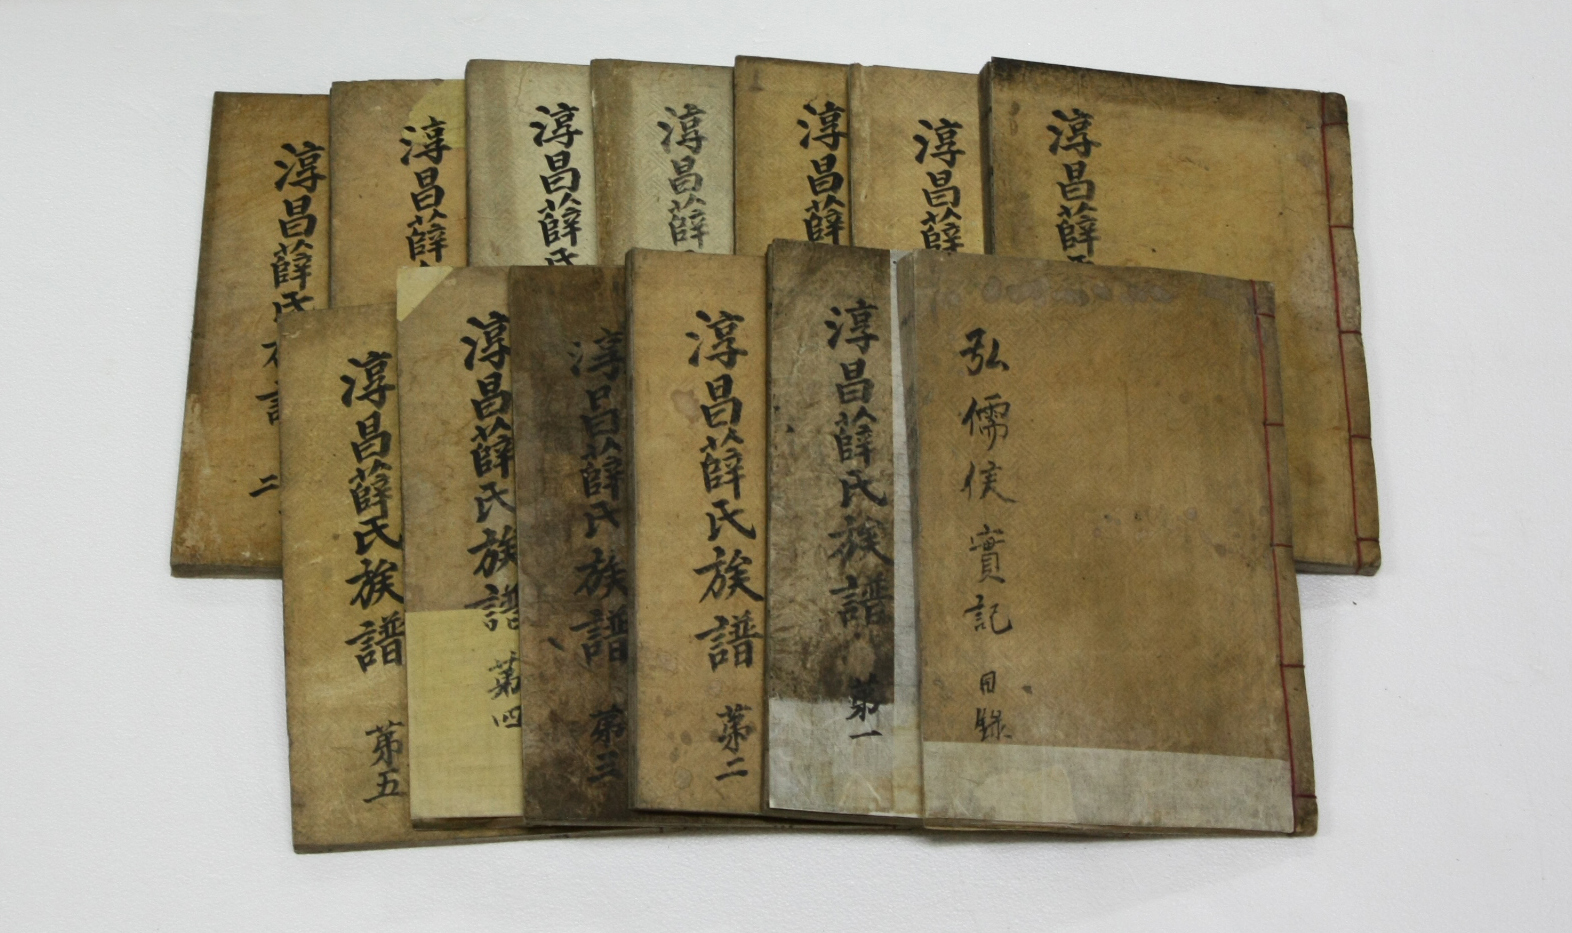 弘儒侯實記 目錄
淳昌薛氏族譜 第一
淳昌薛氏族譜 第二
淳昌薛氏族譜 第三
淳昌薛氏族譜 第四
淳昌薛氏族譜 第五
淳昌薛氏
淳昌薛
淳昌薛
淳昌薛
淳昌薛氏
淳昌薛
淳昌薛氏